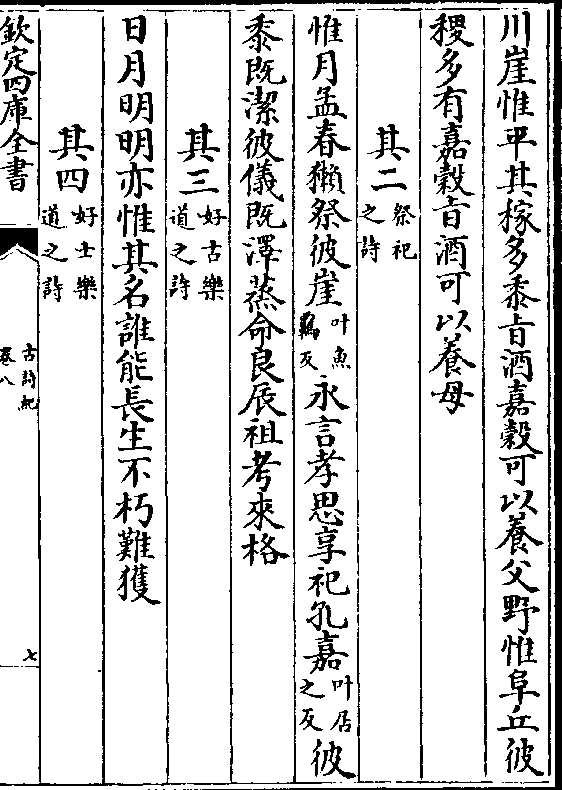 川崖惟平其稼多黍旨酒嘉穀可以養父野惟阜丘彼
稷多有嘉穀旨酒可以養母
其二祭祀之詩
惟月孟春獺祭彼崖叶魚羈反永言孝思享祀孔嘉叶居之反彼
黍既潔彼儀既澤蒸命良辰祖考來格
其三好古樂道之詩
日月明明亦惟其名誰能長生不朽難獲
其四好士樂道之詩
欽定四庫全書
古詩紀
卷八
七